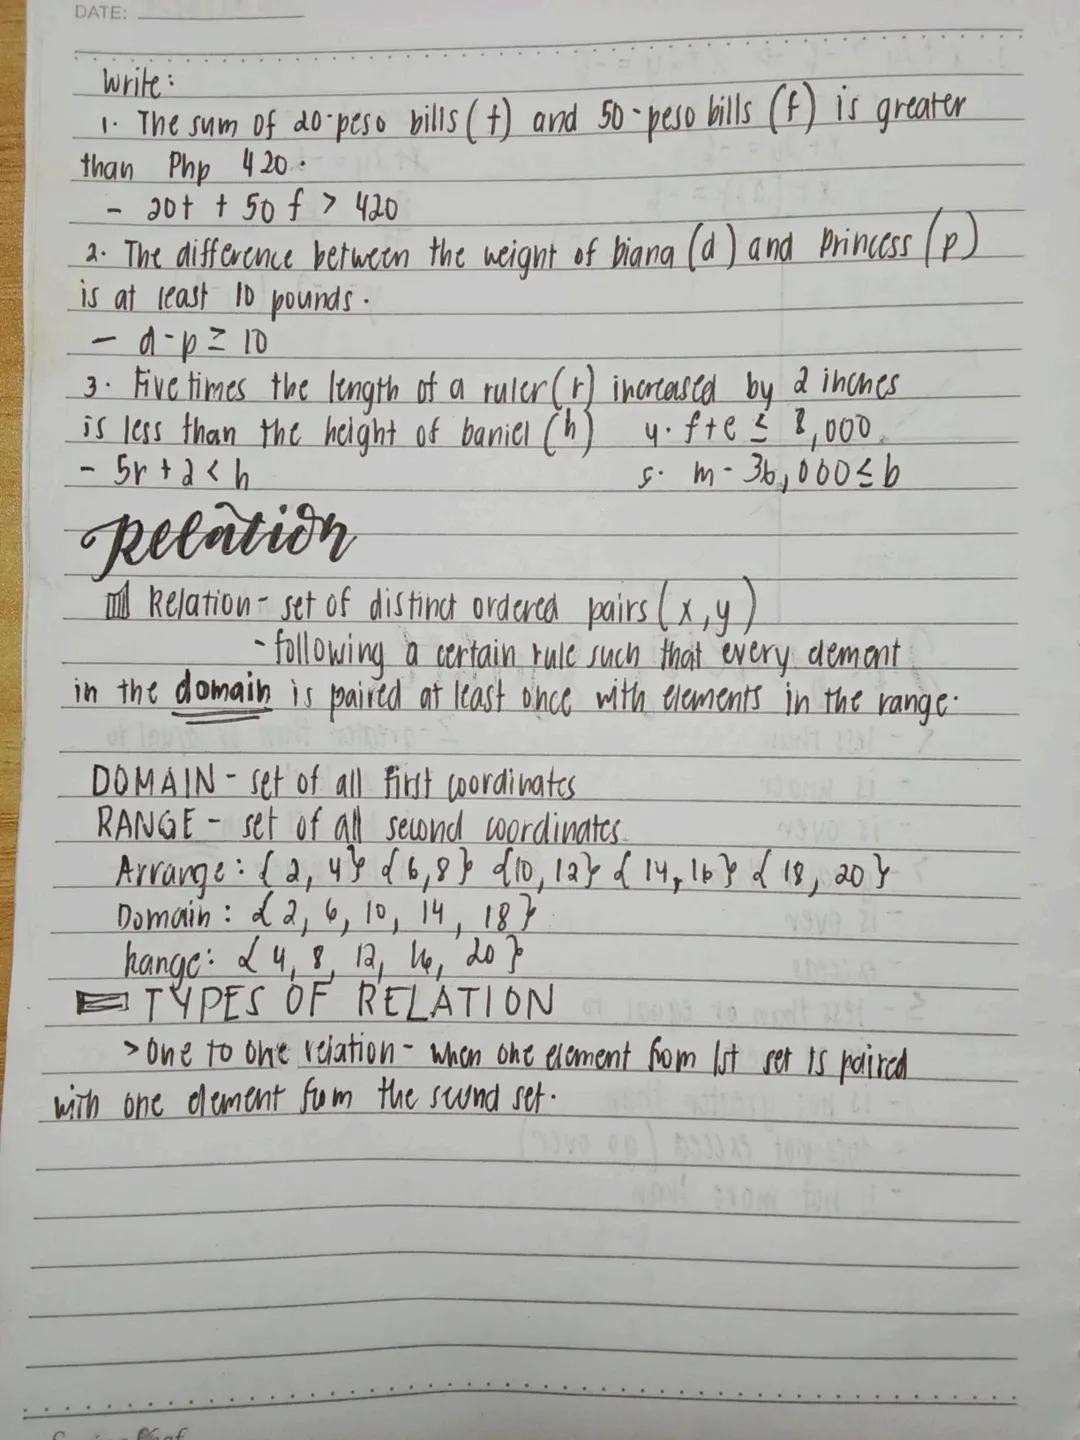 DATE:
Write:
1. The sum of 20-peso bills (t) and 50-peso bills (f) is greater
than Php 420.
- 20t + 50f > 420
2. The difference between the weight of Diana (d) and Princess (p)
is at least 10 pounds.
- d-p ≥ 10
3. Five times the length of a ruler (r) increased by 2 inches
is less than the height of Daniel (h)
4. f+e ≤ 8,000
- 5r + 2 < h
5. m - 36,000 ≤ b
Relation
Relation - set of distinct ordered pairs (x,y)
- following a certain rule such that every element
in the domain is paired at least once with elements in the range.
DOMAIN - set of all first coordinates
RANGE - set of all second coordinates
Arrange: {2, 4} {6,8} {10, 12} {14, 16} {18, 20}
Domain: {2, 6, 10, 14, 18}
Range: {4, 8, 12, 16, 20}
TYPES OF RELATION
> One to one relation - when one element from 1st set is paired
with one element from the second set.